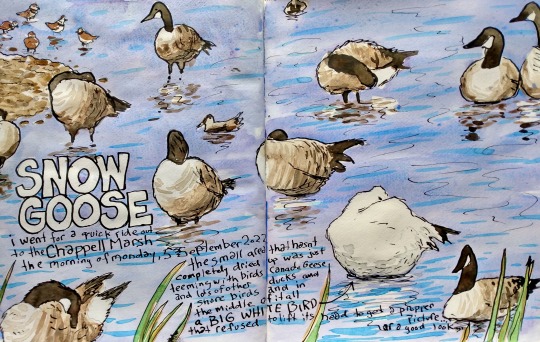 SNOW
GOOSE
i went for a quick ride out
to the Chappell Marsh
the morning of monday, 5 September 2022
the small area that hasn't
completely dried up was just
teeming with birds Canada Geese
and lots of other ducks and
more birds and in
the middle of it all
a BIG WHITE BIRD
that refused to lift its head to get a propper
picture...
or a good look